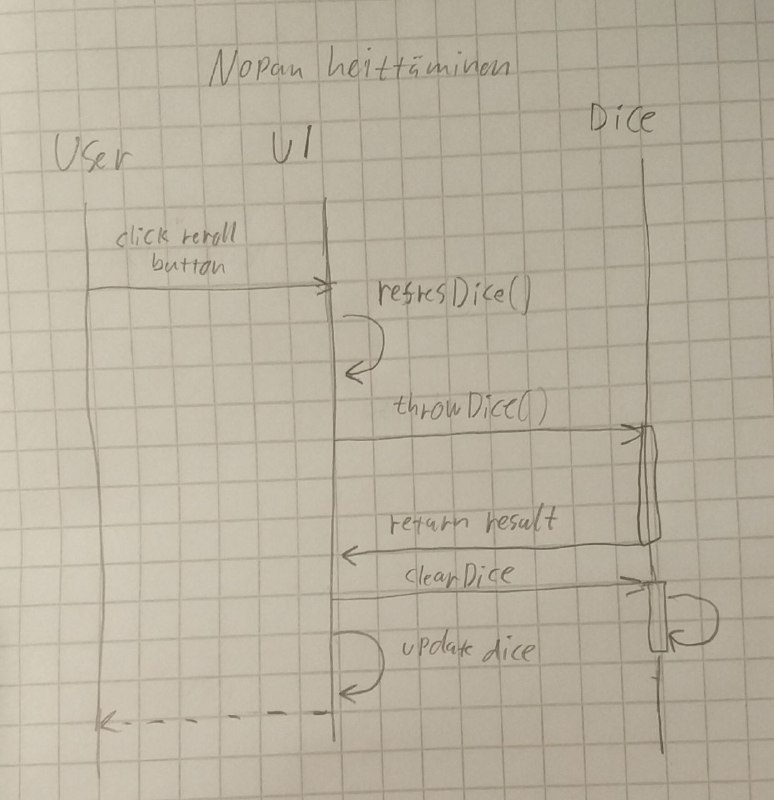 Nopan heittäminen
User
UI
Dice
click reroll
button
refresDice()
throwDice()
return result
clearDice
update dice